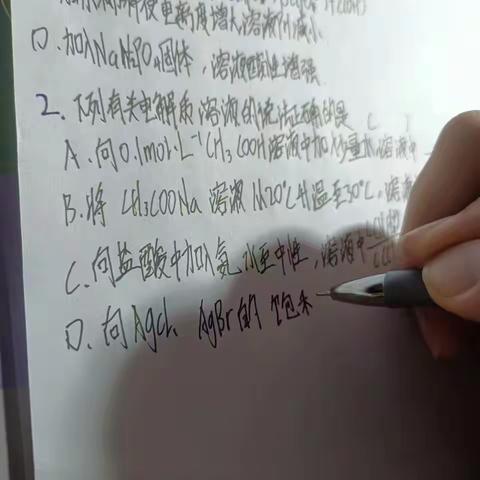 D.加入NaH₂PO₄固体，溶液酸性增强
2.下列有关电解质溶液的说法正确的是（
A.向0.1mol·L⁻¹CH₃COOH溶液中加入少量水，溶液中
B.将CH₃COONa溶液从20℃升温至30℃，溶液
C.向盐酸中加入氨水至中性，溶液中
D.向AgCl、AgBr的饱和